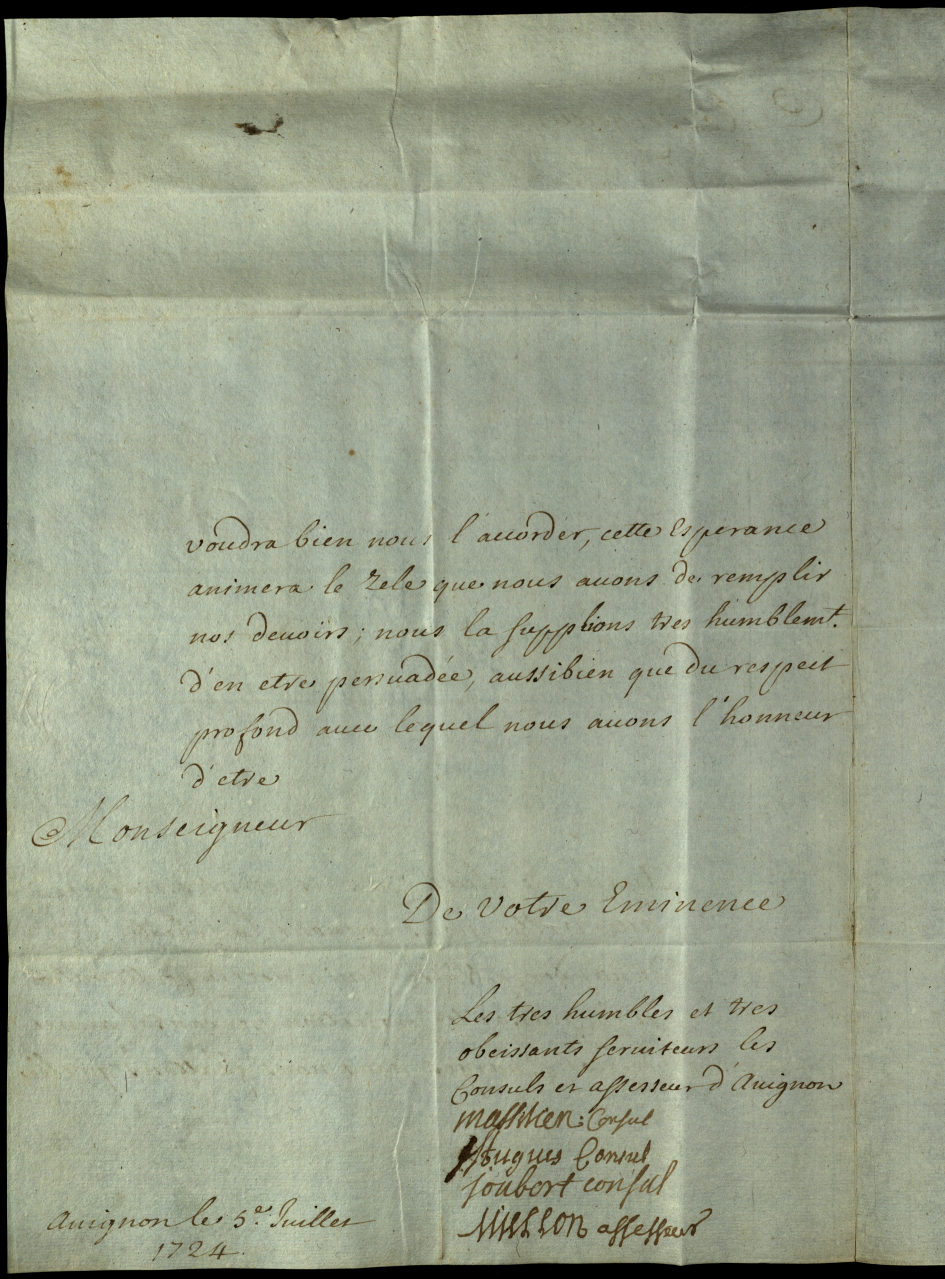 voudra bien nous l'accorder, cette Esperance
animera le Zele que nous auons de remplir
nos deuoirs; nous la supplions tres humblemt.
d'en etre persuadée, aussibien que du respect
profond auec lequel nous auons l'honneur
d'etre
Monseigneur
De Votre Eminence
Les tres humbles et tres
obeissants seruiteurs les
Consuls et assesseur d'Auignon
Consul
Hougues Consul
Joubert consul
assesseur
Auignon le 5e. Juillet
1724.